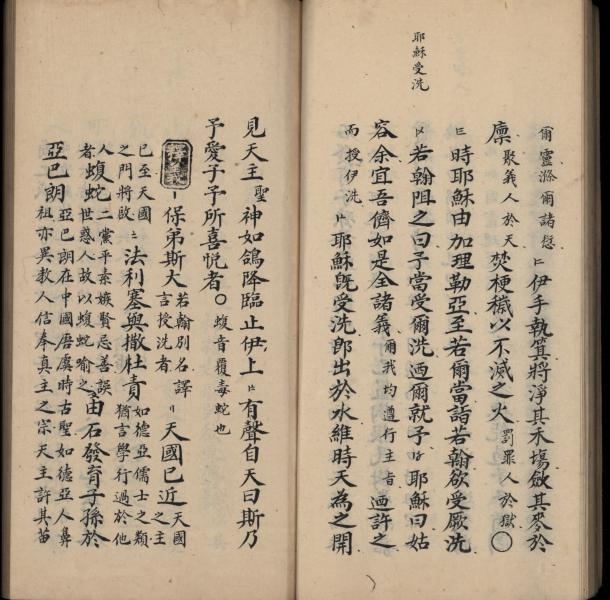 耶穌受洗
爾靈滌爾諸愆 伊手執箕將淨其禾場斂其麥於
廩聚義人於天焚梗穢以不滅之火罰罪人於獄〇
時耶穌由加理勒亞至若爾當詣若翰欲受厥洗
若翰阻之曰予當受爾洗迺爾就予 耶穌曰姑
容余宜吾儕如是全諸義爾我均遵行主旨迺許之
而授伊洗 耶穌旣受洗郎出於水維時天為之開
見天主聖神如鴿降臨止伊上 有聲自天曰斯乃
予愛子予所喜悅者〇蝮音覆毒蛇也
保弟斯大若翰別名譯言授洗者 天國已近天國之主
已至天國之門將啟 法利塞與撒杜責如德亞儒士之類猶言學行過於他
人二黨平素嫉賢忌善誤世惑人故以蝮蛇喻之
者蝮蛇 由石發育子孫於
亞巴朗亞巴朗在中國唐虞時古聖如德亞人鼻祖亦異教人信奉真主之宗天主許其苗